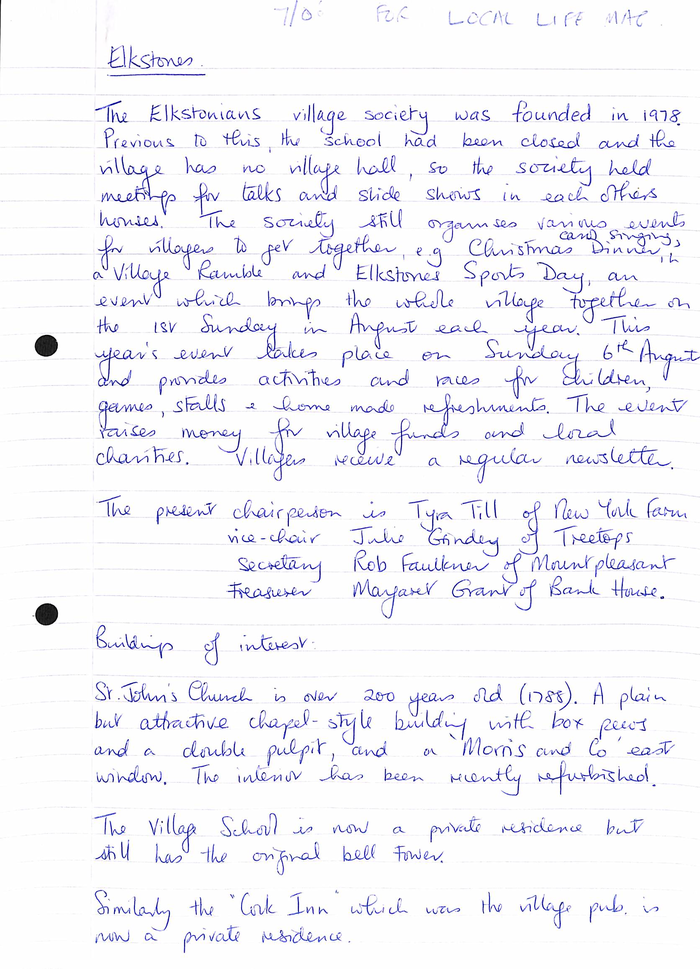 7/0 FOR LOCAL LIFE MAG.
Elkstones.
The Elkstonians village society was founded in 1978.
Previous to this, the school had been closed and the
village has no village hall, so the society held
meetings for talks and slide shows in each others
houses. The society still organises various events
carol singing,
for villagers to get together, e.g Christmas Dinner,
a Village Ramble and Elkstones Sports Day, an
event which brings the whole village together on
the 1st Sunday in August each year. This
year's event takes place on Sunday 6th August
and provides activities and races for children,
games, stalls & home made refreshments. The event
raises money for village funds and local
charities. Villagers receive a regular newsletter.
The present chairperson is Tyra Till of New York Farm
vice-chair Julie Grindey of Treetops
Secretary Rob Faulkner of Mountpleasant
Treasurer Margaret Grant of Bank House.
Buildings of interest:
St. John's Church is over 200 years old (1788). A plain
but attractive chapel-style building with box pews
and a double pulpit, and a 'Morris and Co' east
window. The interior has been recently refurbished.
The Village School is now a private residence but
still has the original bell tower.
Similarly the "Cock Inn" which was the village pub. is
now a private residence.